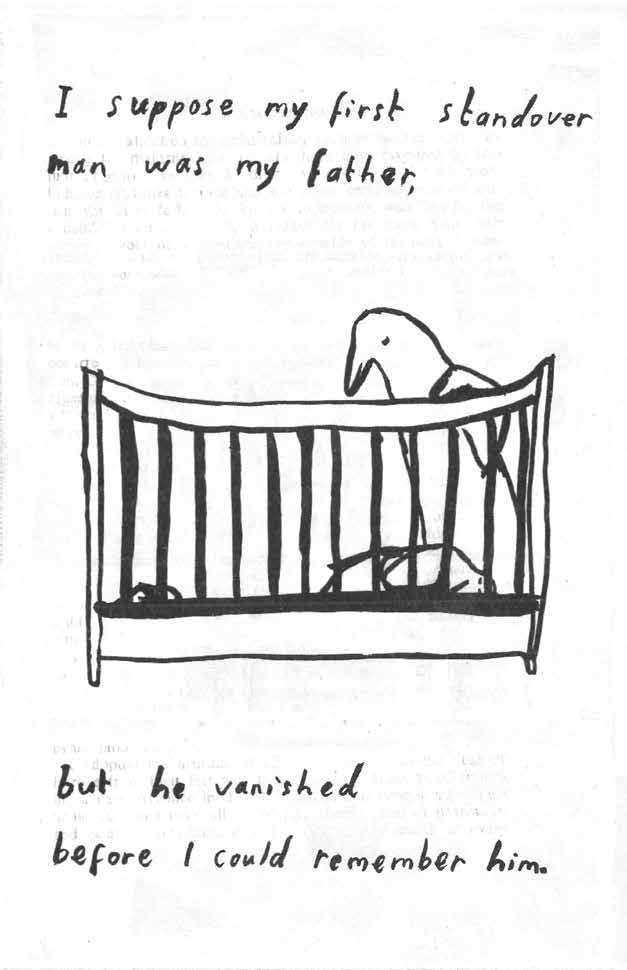 I suppose my first standover
man was my father,
but he vanished
before I could remember him.